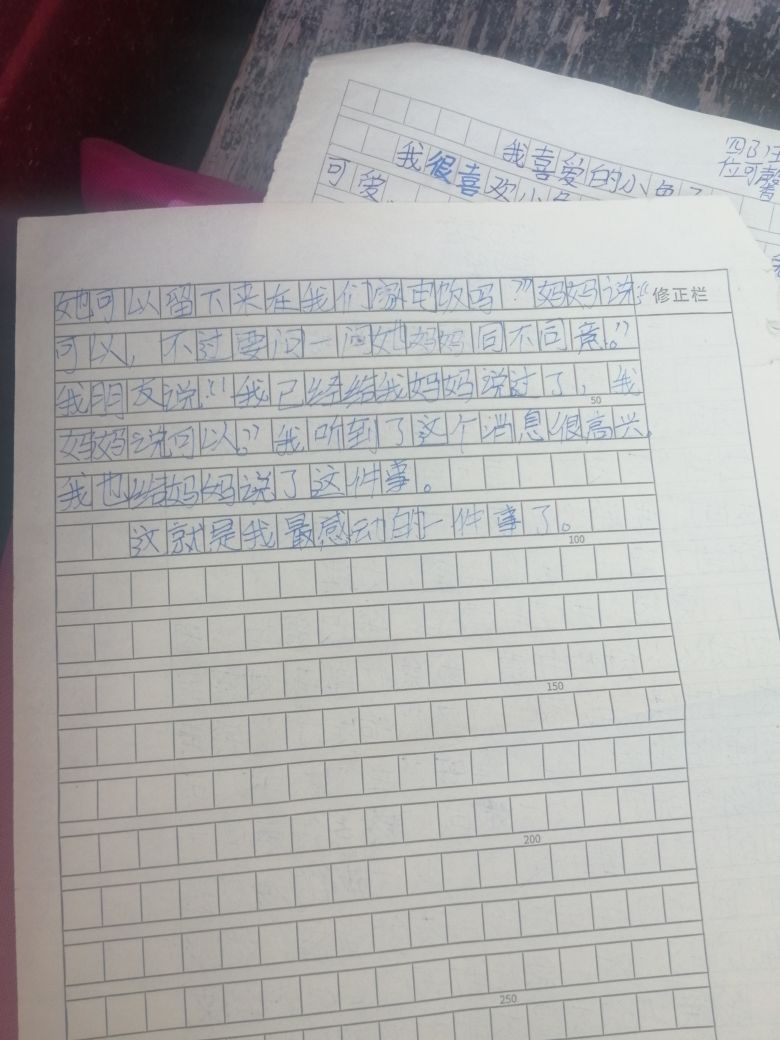 我喜爱的小兔子
我很喜欢小兔
可爱
她可以留下来在我们家吃饭吗？”妈妈说“
修正栏
可以，不过要问一问她妈妈同不同意。”
我朋友说“我已经给我妈妈说过了，我
50
妈妈说可以。”我听到了这个消息很高兴。
我也给妈妈说了这件事。
这就是我最感动的一件事了。
100
150
200
250